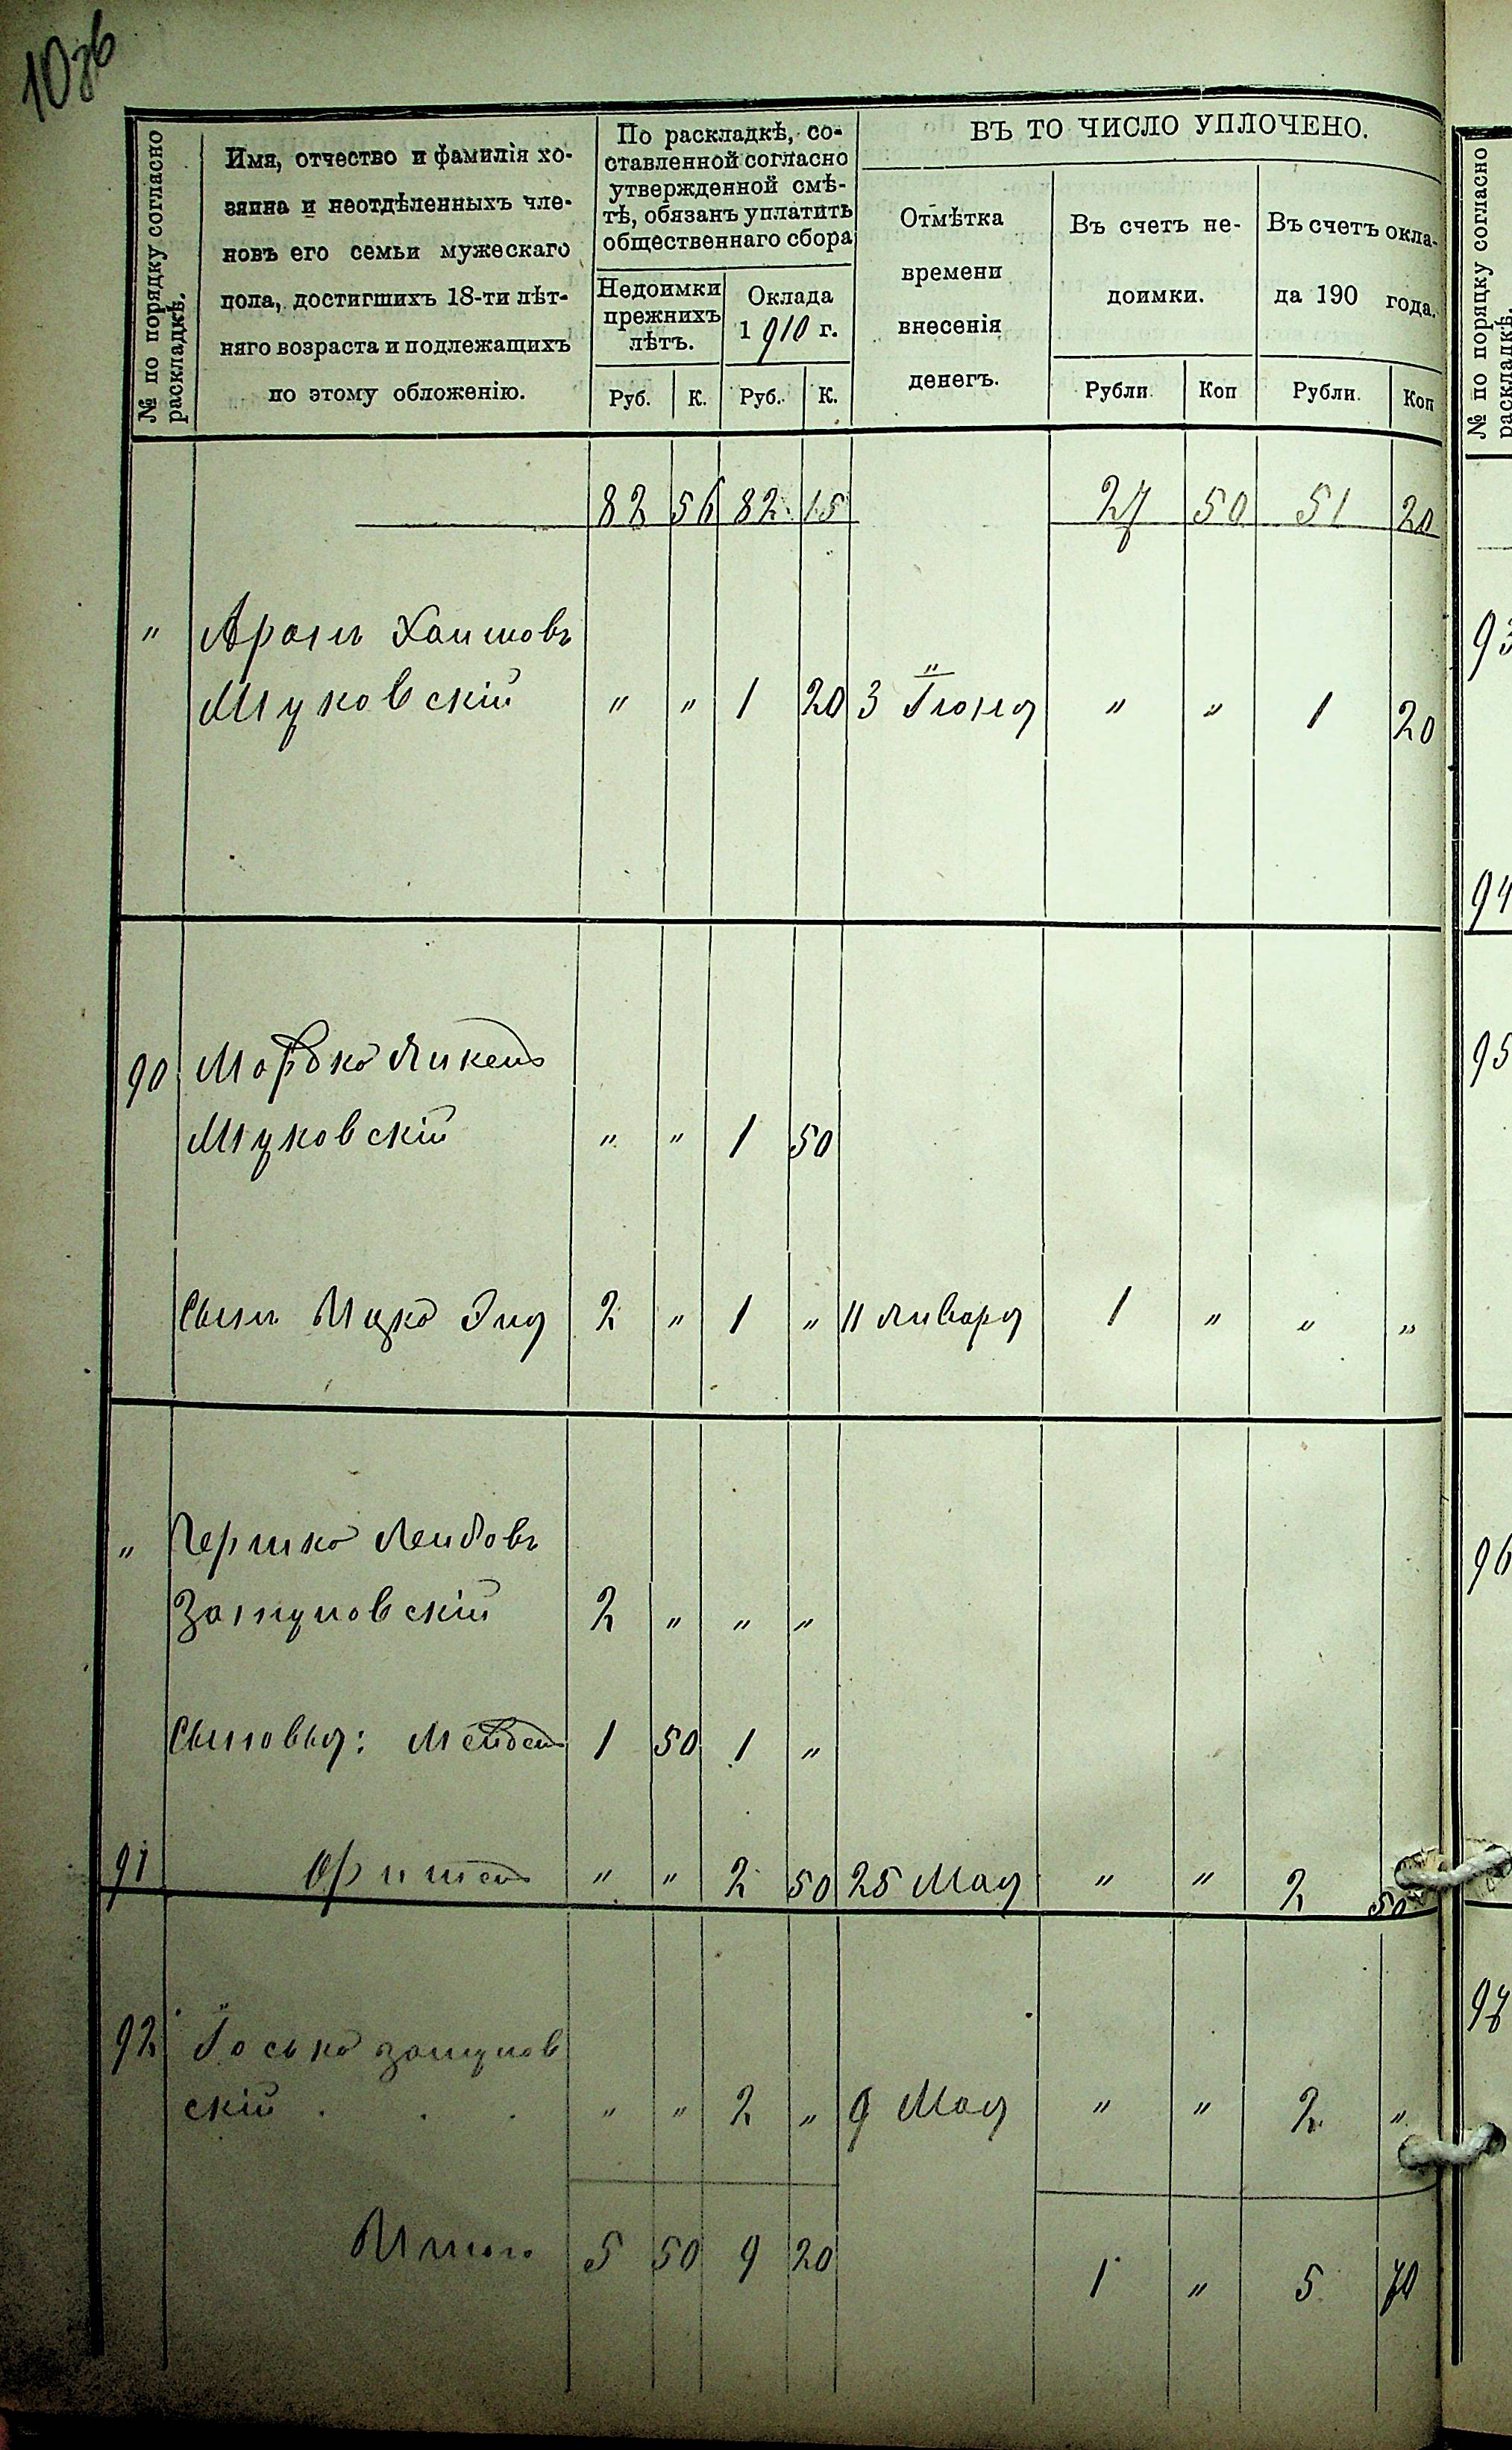 10зв
№ по порядку согласно раскладкѣ.
Имя, отчество и фамилія хо-
зяина и неотдѣленныхъ чле-
новъ его семьи мужескаго
пола, достигшихъ 18-ти лѣт-
няго возраста и подлежащихъ
по этому обложенію.
По раскладкѣ, со-
ставленной согласно
утвержденной смѣ-
тѣ, обязанъ уплатить
общественнаго сбора
Недоимки
прежнихъ
лѣтъ.
Оклада
1910 г.
Руб. К. Руб. К.
ВЪ ТО ЧИСЛО УПЛОЧЕНО.
Отмѣтка
времени
внесенія
денегъ.
Въ счетъ не-
доимки.
Въ счетъ окла-
да 190 года.
Рубли. Коп Рубли. Коп
№ по порядку согласно
раскладкѣ.
82 56 82 15 27 50 51 20
" Аронъ Хаимовъ
" " 1 20 3 Іюня " " 1 20
90 Мордко
" " 1 50
Сынъ Ицко 2 " 1 " 11 Января 1 " " "
" Гершко Лейбовъ
Затуловскій 2 " " "
Сыновья: 1 50 1 "
91 " " 2 50 25 Мая " " 2 50
92 Іосько Затулов
скій . . . " " 2 " 9 Мая " " 2 "
Итого 5 50 9 20 1 " 5 70
93
94
95
96
97